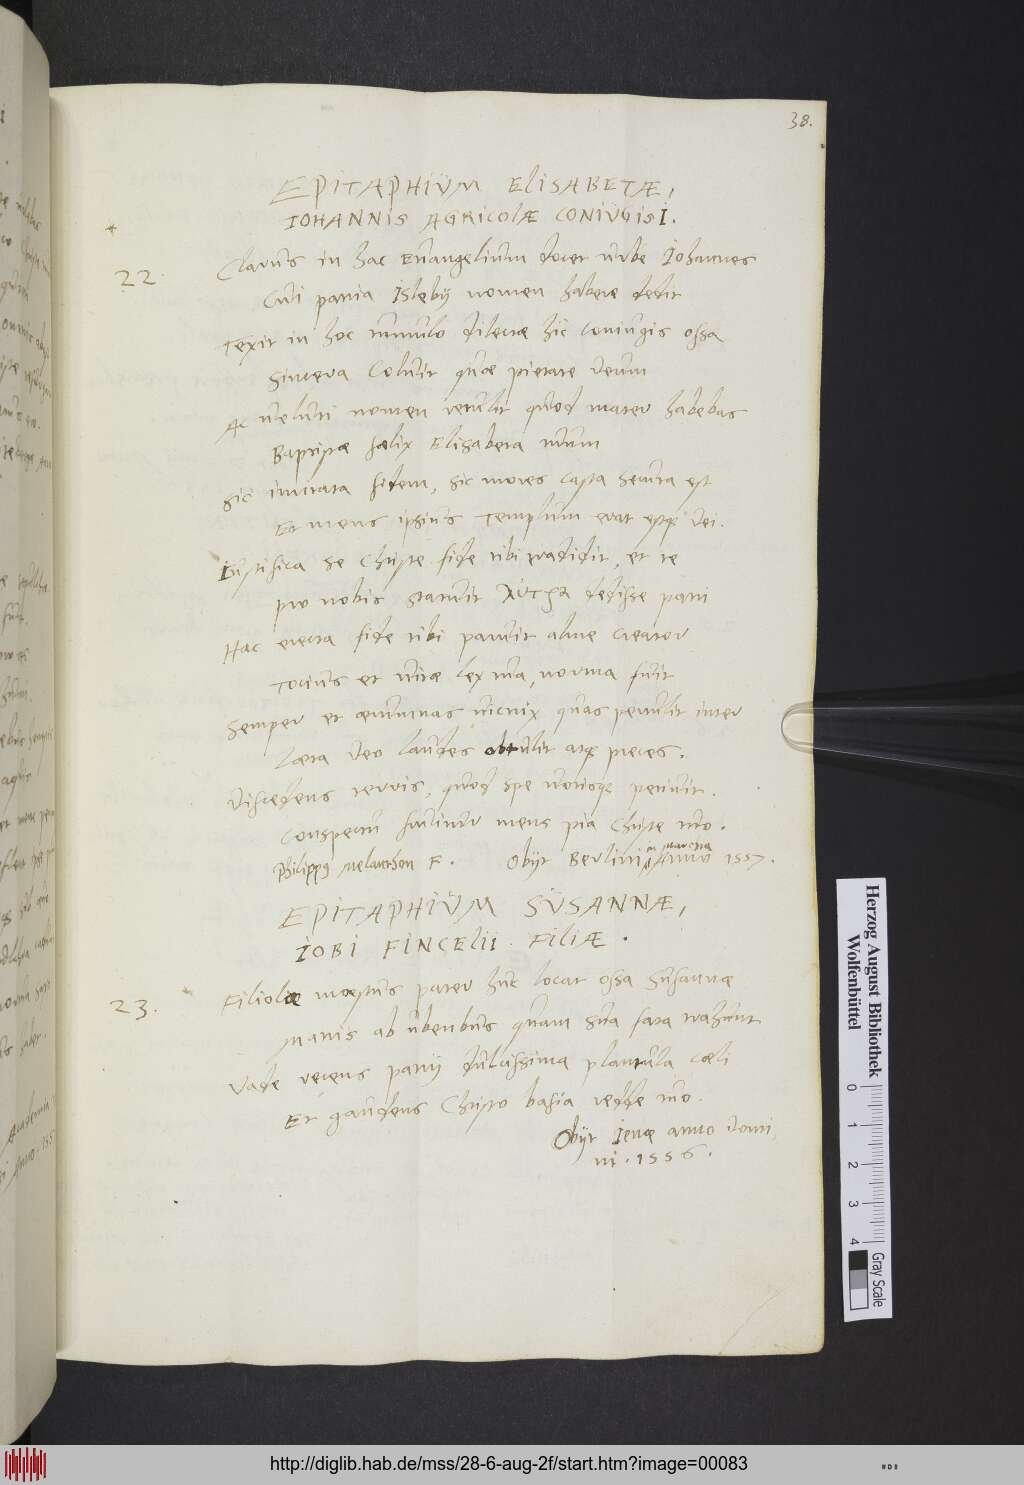 38.
EPITAPHIŬM ELISABETÆ,
IOHANNIS AGRICOLÆ CONIŬGIS I.
*
22.
Clarus in hac Euangelium docet urbe Iohannes
Cui patria Islebij nomen habere dedit
Texit in hoc tumulo dilectæ hic coniugis ossa
Sincera Coluit quæ pietate deum
Ac ueluti nomen retulit quod mater habebas
Baptistæ fælix Elisabeta tuum
Sic imitata fidem, sic mores casta secuta est
Et mens ipsius Templum erat apta Dei.
Iustifica se Christe fide tibi tradidit, et te
pro nobis statuit λύτρα dedisse patri
Hac erecta fide tibi paruit alme creator
Totius et uitæ lex tua, norma fuit
Semper et ærumnas uictrix quas pertulit inter
Læta deo laudes obtulit atque preces.
Discedens terris, quod spe uotisque petiuit.
Conspectu fruitur mens pia Christe tuo.
Philippus Melanthon F. Obijt Berlini in Marchia Anno 1557.
EPITAPHIŬM SŬSANNÆ,
IOBI FINCELII FILIÆ.
23.
Filiolæ mœstus pater huc locat ossa Susannæ
Matris ab uberibus quam sua fata trahunt
Vade recens patrij dulcissima plantula cæli
Et gaudens Christo basia redde tuo.
Obijt Ienæ anno Domi,
ni. 1556.
Herzog August Bibliothek
Wolfenbüttel
0 1 2 3 4
Gray Scale
http://diglib.hab.de/mss/28-6-aug-2f/start.htm?image=00083